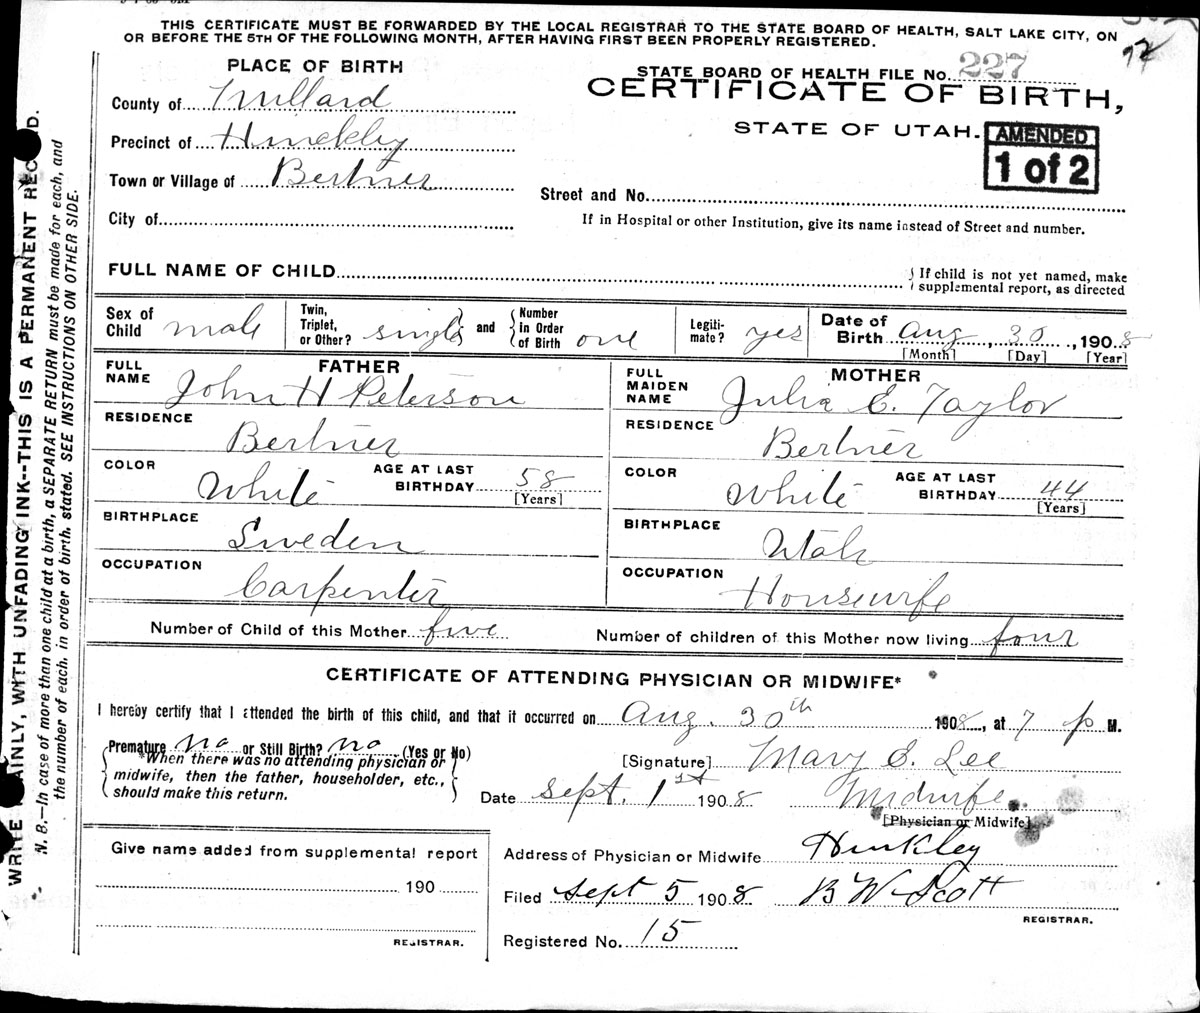 THIS CERTIFICATE MUST BE FORWARDED BY THE LOCAL REGISTRAR TO THE STATE BOARD OF HEALTH, SALT LAKE CITY, ON
OR BEFORE THE 5TH OF THE FOLLOWING MONTH, AFTER HAVING FIRST BEEN PROPERLY REGISTERED.
PLACE OF BIRTH
STATE BOARD OF HEALTH FILE No. 227
County of Millard
CERTIFICATE OF BIRTH,
Precinct of Hinckley
STATE OF UTAH.
AMENDED
1 of 2
Town or Village of Bertner
Street and No.
City of
If in Hospital or other Institution, give its name instead of Street and number.
FULL NAME OF CHILD
If child is not yet named, make
supplemental report, as directed
Sex of Child male
Twin, Triplet, or Other? single and Number in Order of Birth one
Legiti-mate? yes
Date of Birth Aug, 30, 1908
[Month] [Day] [Year]
FATHER
FULL NAME John H Peterson
RESIDENCE
Bertner
COLOR White AGE AT LAST BIRTHDAY 58
[Years]
BIRTHPLACE
Sweden
OCCUPATION
Carpenter
MOTHER
FULL MAIDEN NAME Julia E. Taylor
RESIDENCE
Bertner
COLOR White AGE AT LAST BIRTHDAY 44
[Years]
BIRTHPLACE
Utah
OCCUPATION
Housewife
Number of Child of this Mother five Number of children of this Mother now living four
CERTIFICATE OF ATTENDING PHYSICIAN OR MIDWIFE*
I hereby certify that I attended the birth of this child, and that it occurred on Aug. 30th 1908, at 7 p M.
Premature no or Still Birth? no (Yes or No)
*When there was no attending physician or
midwife, then the father, householder, etc.,
should make this return.
[Signature] Mary E. Lee
Date Sept. 1st 1908 Midwife
[Physician or Midwife]
Give name added from supplemental report
190
REGISTRAR.
Address of Physician or Midwife Hinkley
Filed Sept 5 1908 B W Scott
REGISTRAR.
Registered No. 15
WRITE PLAINLY, WITH UNFADING INK--THIS IS A PERMANENT RECORD.
N. B.--In case of more than one child at a birth, a SEPARATE RETURN must be made for each, and
the number of each, in order of birth, stated. SEE INSTRUCTIONS ON OTHER SIDE.